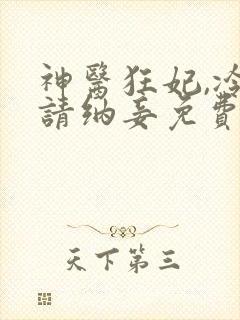 神醫狂妃,冷
請納妾免費
天下第三